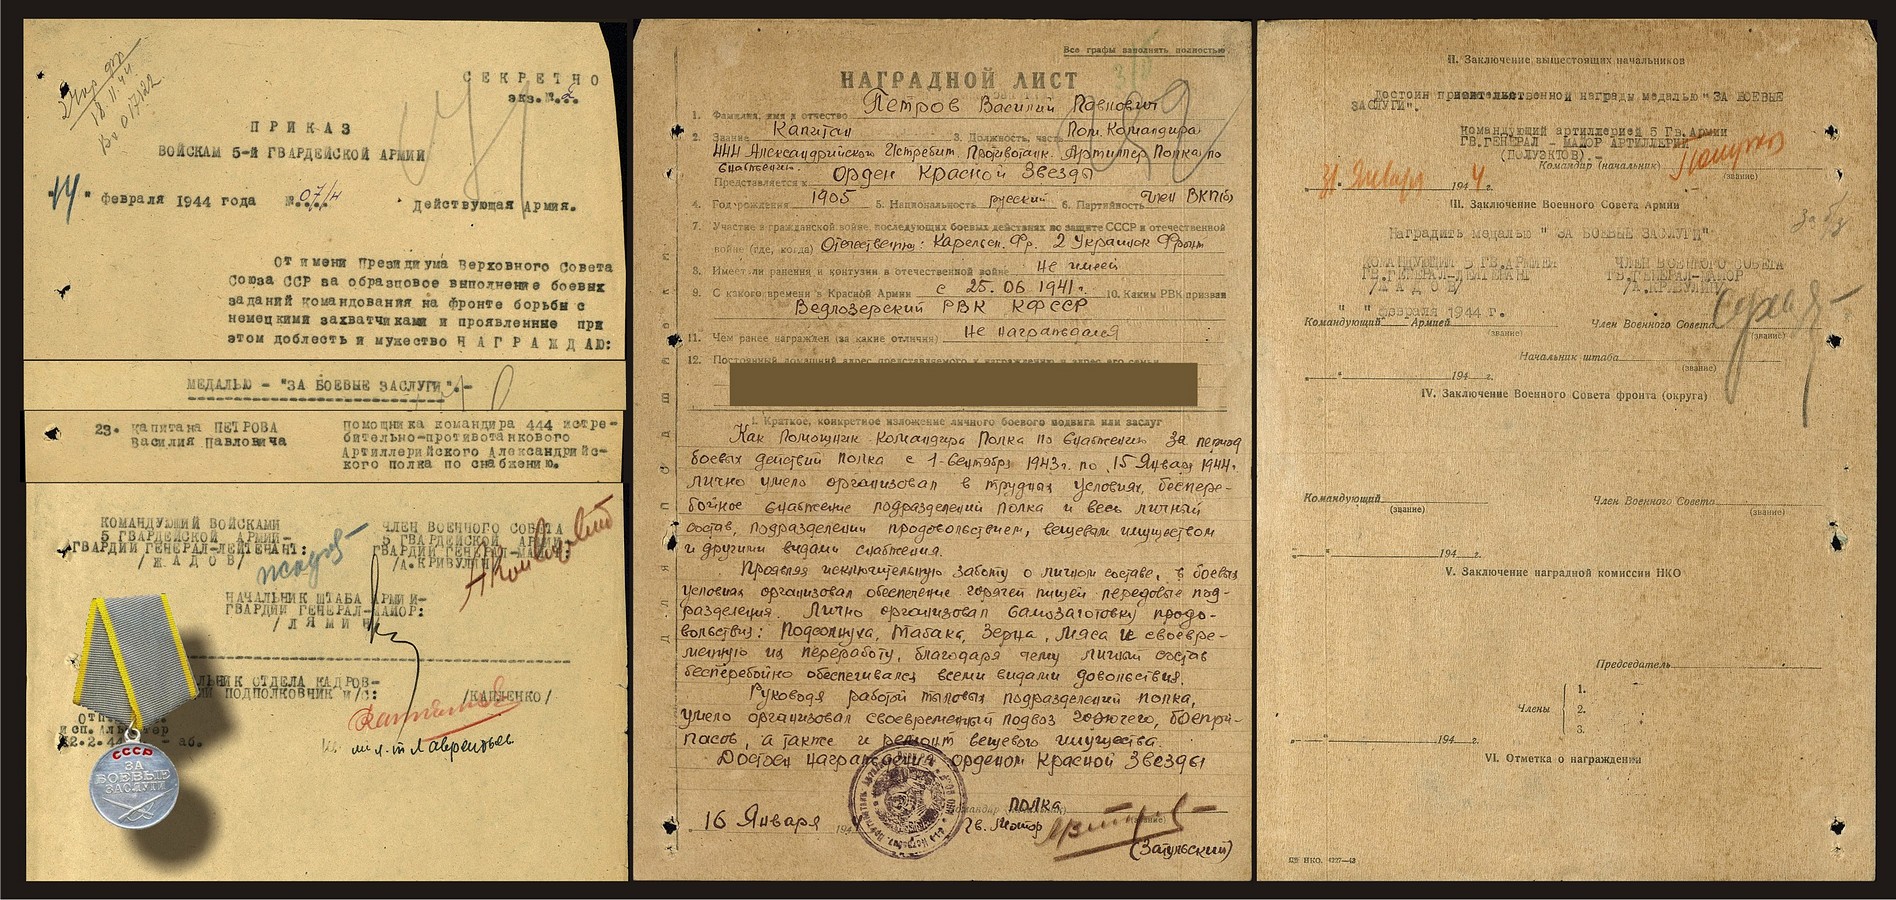 18.11.44
Вх 017122
СЕКРЕТНО
экз.№
ПРИКАЗ
ВОЙСКАМ 5-й ГВАРДЕЙСКОЙ АРМИИ
"14" февраля 1944 года №07/4 Действующая Армия.
От имени Президиума Верховного Совета
Союза ССР за образцовое выполнение боевых
заданий командования на фронте борьбы с
немецкими захватчиками и проявленные при
этом доблесть и мужество НАГРАЖДАЮ:
МЕДАЛЬЮ - "ЗА БОЕВЫЕ ЗАСЛУГИ".-
23. Капитана ПЕТРОВА
Василия Павловича
Помощника командира 444 истре-
бительно-противотанкового
Артиллерийского Александрийс-
кого полка по снабжению.
КОМАНДУЮЩИЙ ВОЙСКАМИ
5 ГВАРДЕЙСКОЙ АРМИИ-
ГВАРДИИ ГЕНЕРАЛ-ЛЕЙТЕНАНТ:
/ЖАДОВ/
ЧЛЕН ВОЕННОГО СОВЕТА
5 ГВАРДЕЙСКОЙ АРМИИ
ГВАРДИИ ГЕНЕРАЛ-МАЙОР:
/А.КРИВУЛИН/
НАЧАЛЬНИК ШТАБА АРМИИ-
ГВАРДИИ ГЕНЕРАЛ-МАЙОР:
/ЛЯМИН/
ЛЬНИК ОТДЕЛА КАДРОВ-
ПОДПОЛКОВНИК И/С: /КАПЛЕНКО/
Лаврентьев
СССР
ЗА
БОЕВЫЕ
ЗАСЛУГИ
Все графы заполнять полностью
НАГРАДНОЙ ЛИСТ
1. Фамилия, имя и отчество Петров Василий Павлович
2. Звание Капитан 3. Должность, часть Пом. Командира
444 Александрийского Истребит. Противотанк. Артиллер Полка по
снабжен.
Представляется к Орден Красной Звезды
4. Год рождения 1905 5. Национальность русский 6. Партийность Член ВКП(б)
7. Участие в гражданской войне, последующих боевых действиях по защите СССР и отечественной
войне (где, когда) Отечественна: Карельск. Фр. 2 Украинск Фронт
8. Имеет ли ранения и контузии в отечественной войне Не имеет
9. С какого времени в Красной Армии с 25.06 1941г. 10. Каким РВК призван
Ведлозерский РВК КФССР
11. Чем ранее награжден (за какие отличия) Не награждался
12. Постоянный домашний адрес представляемого к награждению и адрес его семьи
I. Краткое, конкретное изложение личного боевого подвига или заслуг
Как Помощник Командира Полка по снабжению за период
боевых действий полка с 1-сентября 1943г. по 15 Января 1944г.
лично умело организовал в трудных условиях, беспере-
бойное снабжение подразделений полка и весь личный
состав, подразделении продовольствием, вещевым имуществом
и другими видами снабжения.
Проявляя исключительную заботу о личном составе, в боевых
условиях организовал обеспечение горячей пищей передовые под-
разделения. Лично организовал самозаготовку продо-
вольствия: Подсолнуха, Табака, Зерна, Мяса и своевре-
менную их переработку, благодаря чему личный состав
бесперебойно обеспечивался всеми видами довольствия.
Руководя работой тыловых подразделений полка,
умело организовал своевременный подвоз горючего, боепри-
пасов, а также и ремонт вещевого имущества.
Достоин награждения орденом Красной Звезды
полка
16 Января 194 Гв. Майор
(Затульский)
II. Заключение вышестоящих начальников
Достоин правительственной награды медалью "ЗА БОЕВЫЕ
ЗАСЛУГИ".
Командующий артиллерией 5 Гв.Армии
ГВ.ГЕНЕРАЛ - МАЙОР АРТИЛЛЕРИИ
(ПОЛУЭКТОВ).-
Командир (начальник)
(звание)
31 Января 1944 г.
III. Заключение Военного Совета Армии
Наградить медалью "ЗА БОЕВЫЕ ЗАСЛУГИ"
За б/з
КОМАНДУЮЩИЙ 5 ГВ.АРМИИ
ГВ.ГЕНЕРАЛ-ЛЕЙТЕНАНТ
/ЖАДОВ/
ЧЛЕН ВОЕННОГО СОВЕТА
ГВ.ГЕНЕРАЛ-МАЙОР
/А.КРИВУЛИН/
" " февраля 1944 г.
Командующий Армией Член Военного Совета
(звание) (звание)
Начальник штаба
(звание)
" " 194 г.
IV. Заключение Военного Совета фронта (округа)
Командующий Член Военного Совета
(звание) (звание)
" " 194 г.
V. Заключение наградной комиссии НКО
Председатель
Члены
1.
2.
3.
" " 194 г.
VI. Отметка о награждении